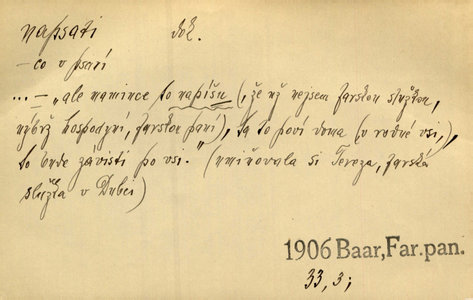 napsati dok.
– co v psaní
... – „ale mamince to napíšu (, že už nejsem farskou služkou,
nýbrž hospodyní, farskou paní), ta to poví doma (v rodné vsi,),
to bude závisti po vsi." (umiňovala si Tereza, farská
služka v Dubci)
1906 Baar, Far. pan.
33, 3;